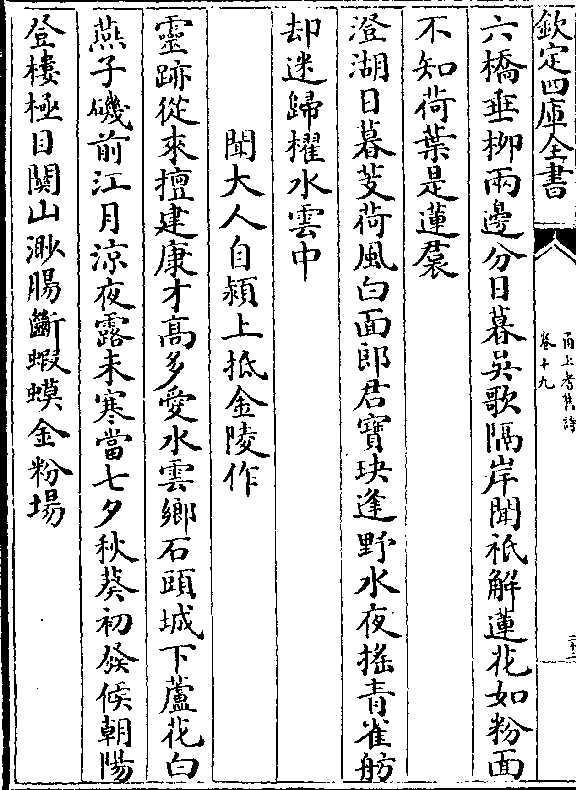 欽定四庫全書
甬上耆舊詩
卷十九
六橋垂柳兩邊分日暮吳歌隔岸聞祇解蓮花如粉面
不知荷葉是蓮裙
澄湖日暮芰荷風白面郎君寶玦逢野水夜搖青雀舫
却迷歸櫂水雲中
聞大人自潁上抵金陵作
靈跡從來擅建康才高多愛水雲鄉石頭城下蘆花白
燕子磯前江月涼夜露未寒當七夕秋葵初發候朝陽
登樓極目關山渺腸斷蝦蟆金粉場